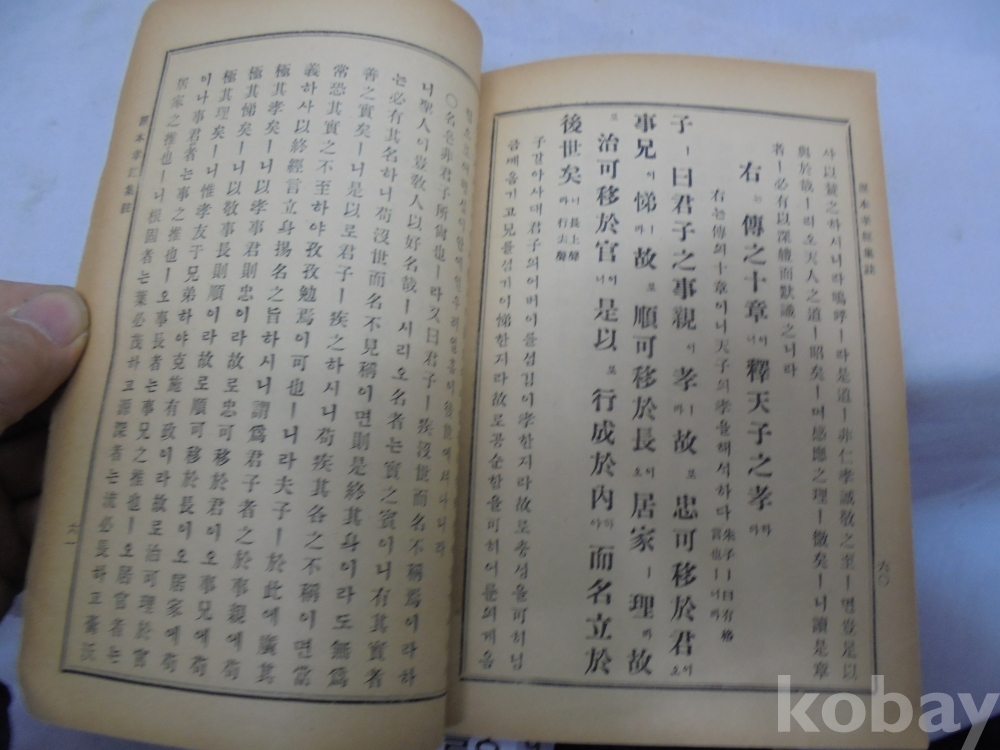 原本孝經集註
六〇
사以兢之하시니라嗚呼ㅣ라是道ㅣ非仁孝誠敬之至ㅣ면豈足以
與於哉ㅣ리오天人之道ㅣ昭矣ㅣ며感應之理ㅣ徵矣ㅣ니讀是章
者ㅣ必有以深體而默識之니라
右는傳之十章이니釋天子之孝하니라
右는傳의十章이니天子의孝을해석하다朱子ㅣ曰有格言也ㅣ니라
子ㅣ曰君子之事親이孝ㅣ라故로忠可移於君이오
事兄이悌라故로順可移於長이오居家ㅣ理라故
로治可移於官이니是以로行成於內하야而名立於
後世矣니라長上聲行去聲
子갈아사대君子의어버이를섬김이孝한지라故로충성을可히님
금께옴기고兄를섬기이悌한지라故로공순함을可히어룬의게옴
〇名은非君子所尙也ㅣ라又曰君子ㅣ疾沒世而名不稱焉이라하
니聖人이豈敎人以好名哉ㅣ시리오名者는實之賓이니有其實者
는必有其名하니苟沒世而名不見稱이면則是終其身이라도無爲
善之實矣ㅣ니是以로君子ㅣ疾之하시니苟疾其名之不稱이면當
常恐其實之不至하야孜孜勉焉이可也ㅣ니라夫子ㅣ於此에廣其
義하사以終經言立身揚名之旨하시니謂爲君子者之於事親에苟
極其孝矣ㅣ니以孝事君則忠이라故로忠可移於君이오事兄에苟
極其悌矣ㅣ니以敬事長則順이라故로順可移於長이오居家에苟
極其理矣ㅣ니惟孝友于兄弟하야克施有政이라故로治可理於官
이나事君者는事之推也ㅣ오事長者는事兄之推也ㅣ오居官者는
居家之推也ㅣ니根固者는葉必茂하고源深者는流必長하고
原本孝經集註
六一
kobay